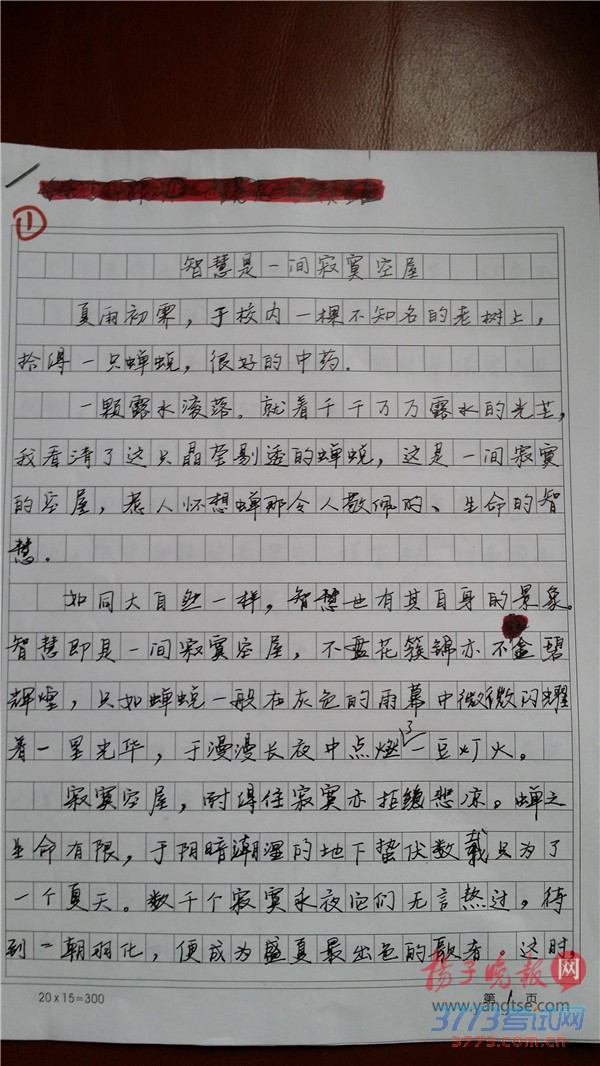 ①
智慧是一间寂寞空屋
夏雨初霁，于校内一棵不知名的老树上，
拾得一只蝉蜕，很好的中药.
一颗露水滚落。就着千千万万露水的光芒，
我看清了这只晶莹剔透的蝉蜕，这是一间寂寞
的空屋，惹人怀想蝉那令人敬佩的、生命的智
慧.
如同大自然一样，智慧也有其自身的景象。
智慧即是一间寂寞空屋，不 花簇锦亦不金碧
辉煌，只如蝉蜕一般在灰色的雨幕中微微闪耀
着一星光华，于漫漫长夜中点燃了一豆灯火。
寂寞空屋，耐得住寂寞亦拒绝悲凉。蝉之
生命有限，于阴暗潮湿的地下蛰伏数载只为了
一个夏天。数千个寂寞永夜它们无言熬过，待
到一朝羽化，便成为盛夏最出色的歌者。这时，
20×15=300
第 1 页
扬子晚报网
www.yangtse.com
3773考试网
3773.com.cn